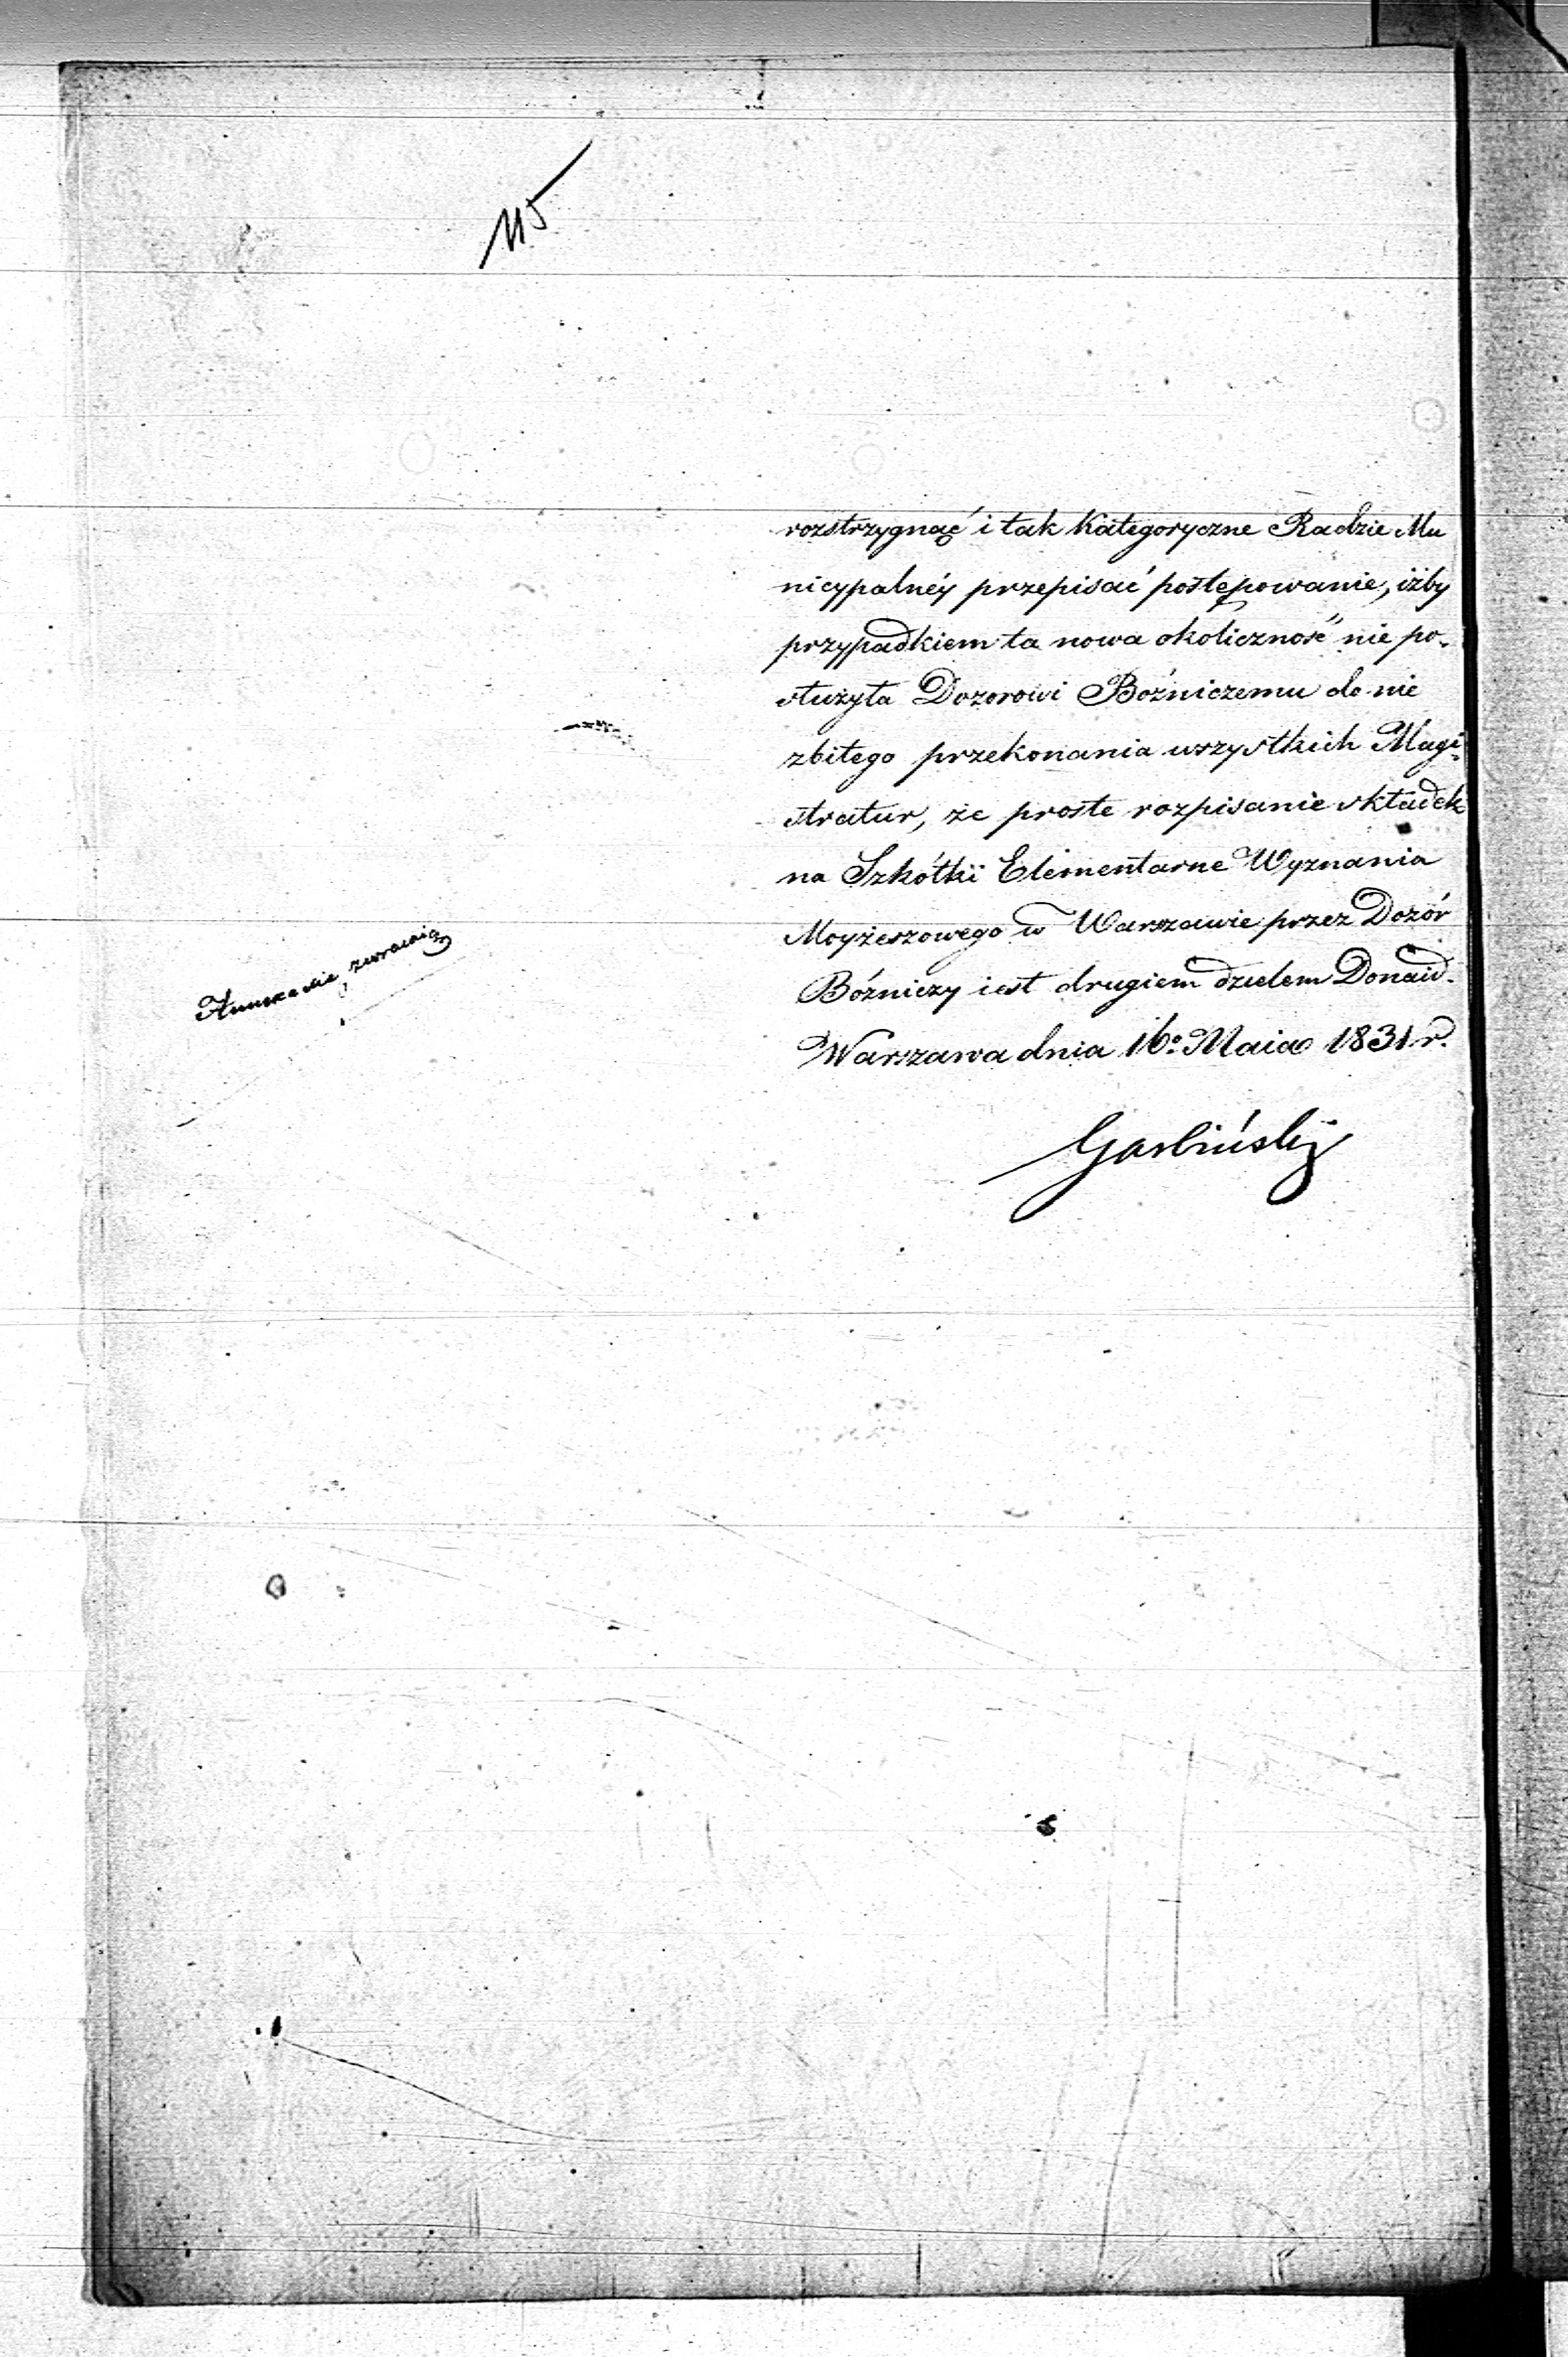 115
rozstrzygnąć i tak Kategoryczne Radzie Mu
nicypalnéy przepisać postępowanie, iżby
przypadkiem ta nowa okoliczność nie po-
służyła Dozorowi Bóźniczemu do nie
zbitego przekonania wszystkich Magi-
stratur, że proste rozpisanie składek
na Szkółki Elementarne Wyznania
Moyżeszowego w Warszawie przez Dozór
Bóźniczy iest drugiem dziełem Donaid.
Warszawa dnia 16º Maia 1831 r.
zwracaią
Garbiński